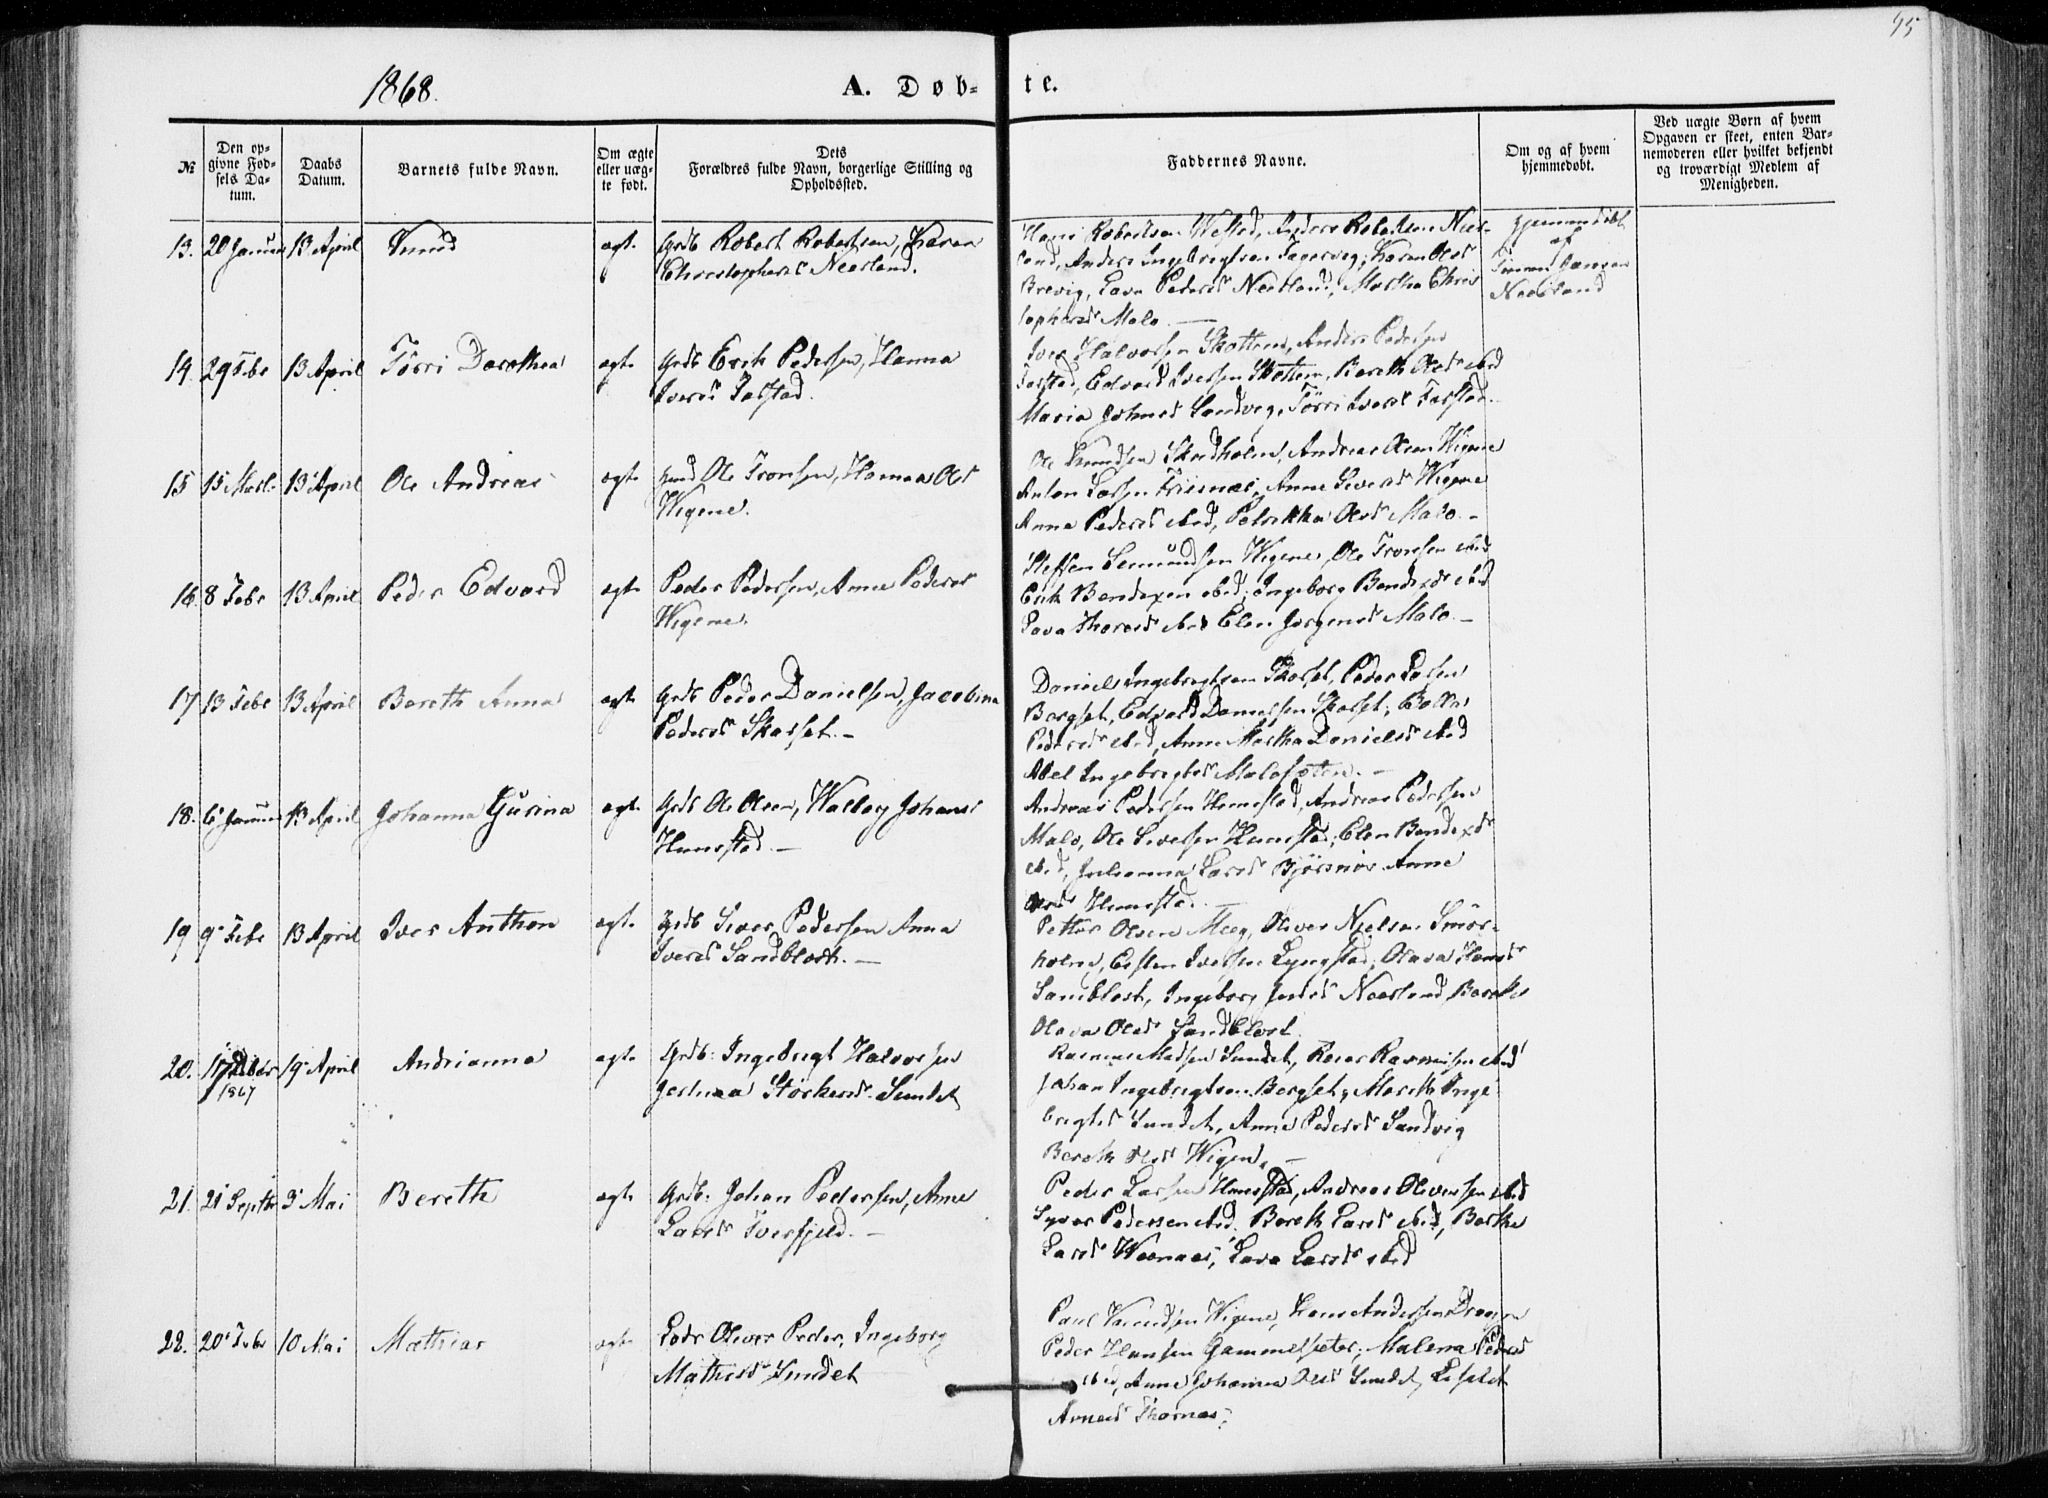 45
1868.
A. Døb-
te.
№
Den op-
givne Fød-
sels Da-
tum.
Daabs
Datum.
Barnets fulde Navn.
Om ægte
eller uæg-
te født.
Dets
Forældres fulde Navn, borgerlige Stilling og
Opholdssted.
Faddernes Navne.
Om og af hvem
hjemmedøbt.
Ved uægte Børn af hvem
Opgaven er skeet, enten Bar-
nemoderen eller hvilket bekjendt
og troværdigt Medlem af
Menigheden.
13. 20 Januar 13 April Knud ægt. Grdb Robert Robertsen, Karen
Christophersd Neerland.
Hans Robertsen Anders Robertsen Neer-
land, Anders Ingebrigtsen Karen Olsd
Brevig, Lava Pedersd Neerland, Martha Chris
tophersd Malo. —
Hjemmedøbt
af
Jansen
Neerland
14. 29 Febr 13 April Dorothea ægt. Grdb Erik Pedersen, Hanna
Iversd Farstad.
Iver Halvorsen Skottem, Anders Pedersen
Farstad, Edvard Iversen Skottem, Bereth Olsd ibid
Maria Johnsd Sandvig, Iversd Farstad.
15 15 13 April Ole Andreas ægt. Ole Tronsen, Hanna Olsd
Wigene.
Ole Knudsen Andreas Olsen Wigene
Anton Larsen Anne Siversd Wigene
Anna Pedersd ibid, Olsd Malo. -
16. 8 Febr 13 April Peder Edvard ægt. Peder Pedersen, Anne Pedersd
Wigene.
Steffen Wigene, Ole Tronsen ibid
Erik Bendixen ibid, Ingeborg Bendixd ibid
Lava ibid Elen Jørgensd Malo. —
17 13 Febr 13 April Bereth Anna ægt. Grdb Peder Danielsen, Jacobina
Pedersd Skarset. —
Daniel Ingebrigtsen Skarset, Peder Larsen
Bergset, Edvard Danielsen Skarset,
Pedersd ibid, Anne Martha Danielsd ibid
Abel Ingebrigtsd —
18. 6 Januar 13 April Johanna Gurina ægt. Grdb Ole Olsen, Walborg Johansd
Hunestad. —
Andreas Pedersen Hunestad, Andreas Pedersen
Malo, Ole Hunestad, Elen Bendixd
ibid, Julianna Larsd Bjørnør Anne
Olsd Hunestad. —
19 9 Febr 13 April Iver Anthon ægt. Grdb Siver Pedersen Anna
Iversd Sandblost. —
Petter Olsen Meeg, Oliver Nielsen Smør-
holm, Iversen Lyngstad, Olava Hansd
Sandblost, Ingeborg Neerland Berethe
Olava Olsd Sandblost.
20. 17 Decbr 19 April Andrianna ægt. Grdb: Ingebrigt Halvorsen
1867
Størkersd Sundet
Rasmus Madsen Sundet, Rasmusen ibid
Johan Ingebrigtsen Bergset, Mareth Inge-
brigtsd Sundet, Anne Pedersd Sandvig
Bereth Olsd Wigen. —
21. 21 Septbr 3 Mai Bereth ægt. Grdb: Johan Pedersen, Anne
Larsd Tverfjeld. —
Peder Larsen Hunestad, Andreas Oliversen ibid
Syver Pedersen ibid, Bereth Larsd ibid, Berthe
Larsd Lava Larsd ibid
22. 20 Febr 10 Mai Mathias ægt. Oliver Peder, Ingeborg
Mathisd Sundet
Paul Wigene, Hans Andersen
Peder Hansen Gammelsæter, Malena Pedersd
ibid, Anne Johanna Olsd Sundet,
Arnesd